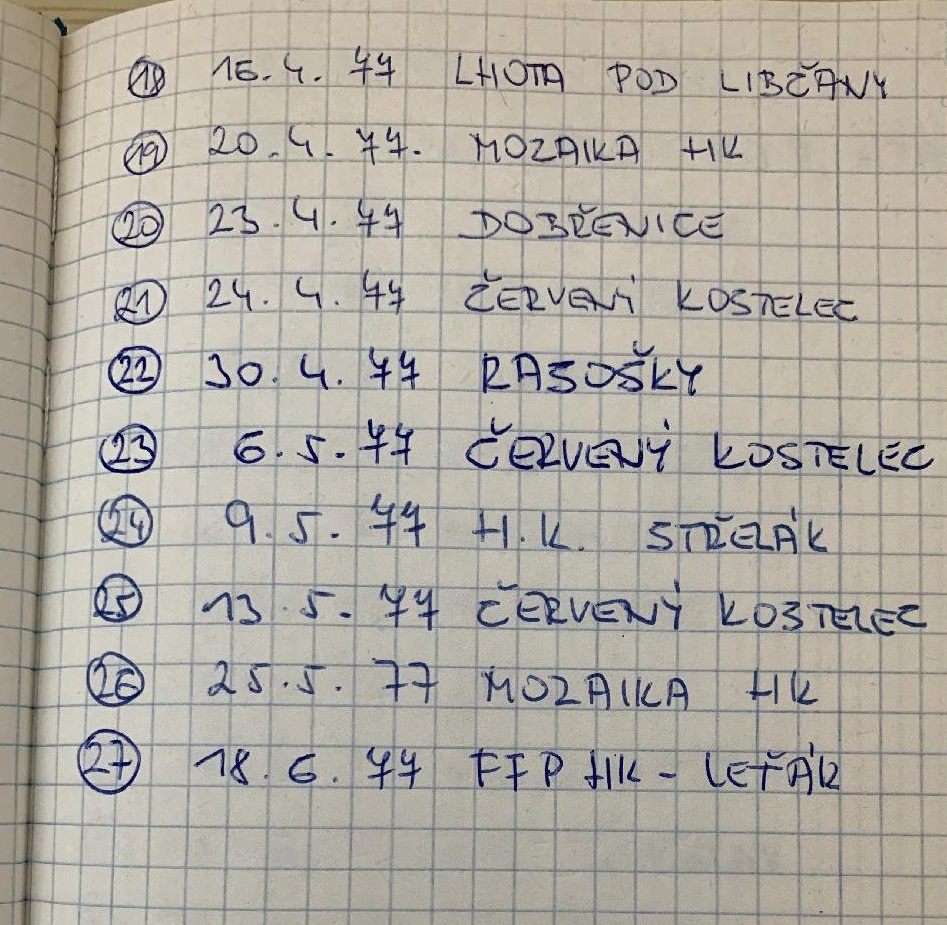 18 16.4.77 LHOTA POD LIBČANY
19 20.4.77. MOZAIKA HK
20 23.4.77 DOBŘENICE
21 24.4.77 ČERVENÝ KOSTELEC
22 30.4.77 RASOŠKY
23 6.5.77 ČERVENÝ KOSTELEC
24 9.5.77 H.K. STŘELÁK
25 13.5.77 ČERVENÝ KOSTELEC
26 25.5.77 MOZAIKA HK
27 18.6.77 FFP HK - LEŤÁK